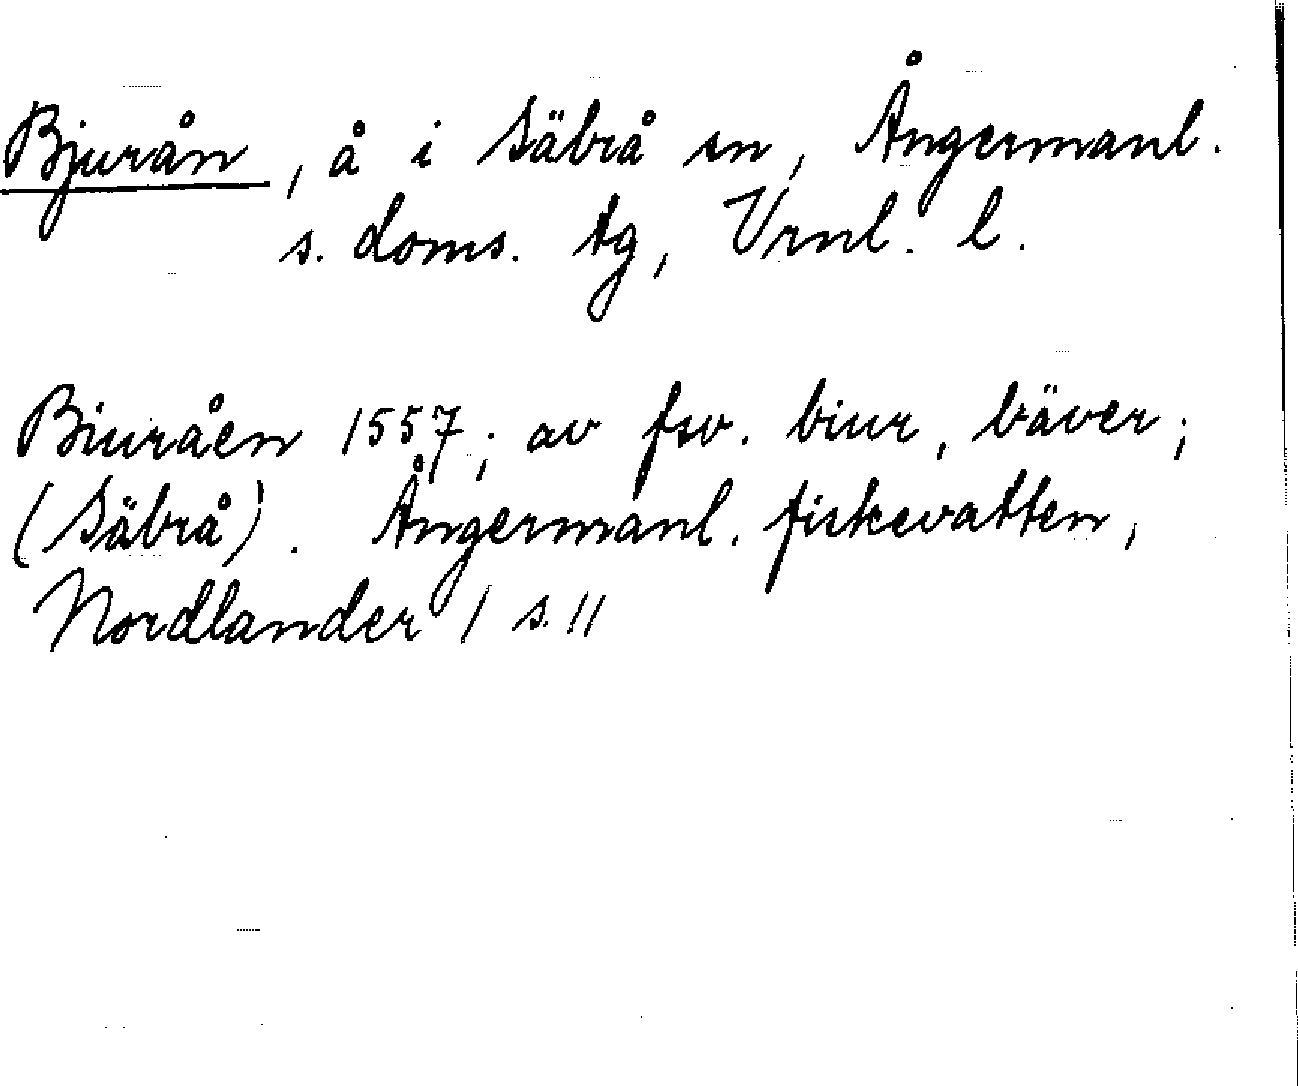 Bjurån, å i Säbrå sn, Ångermanl.
s. doms. tg, Vrnl. l.
Biuråen 1557; av fsv. biur, bäver;
(Säbrå). Ångermanl. fiskevatten,
Nordlander / s. 11